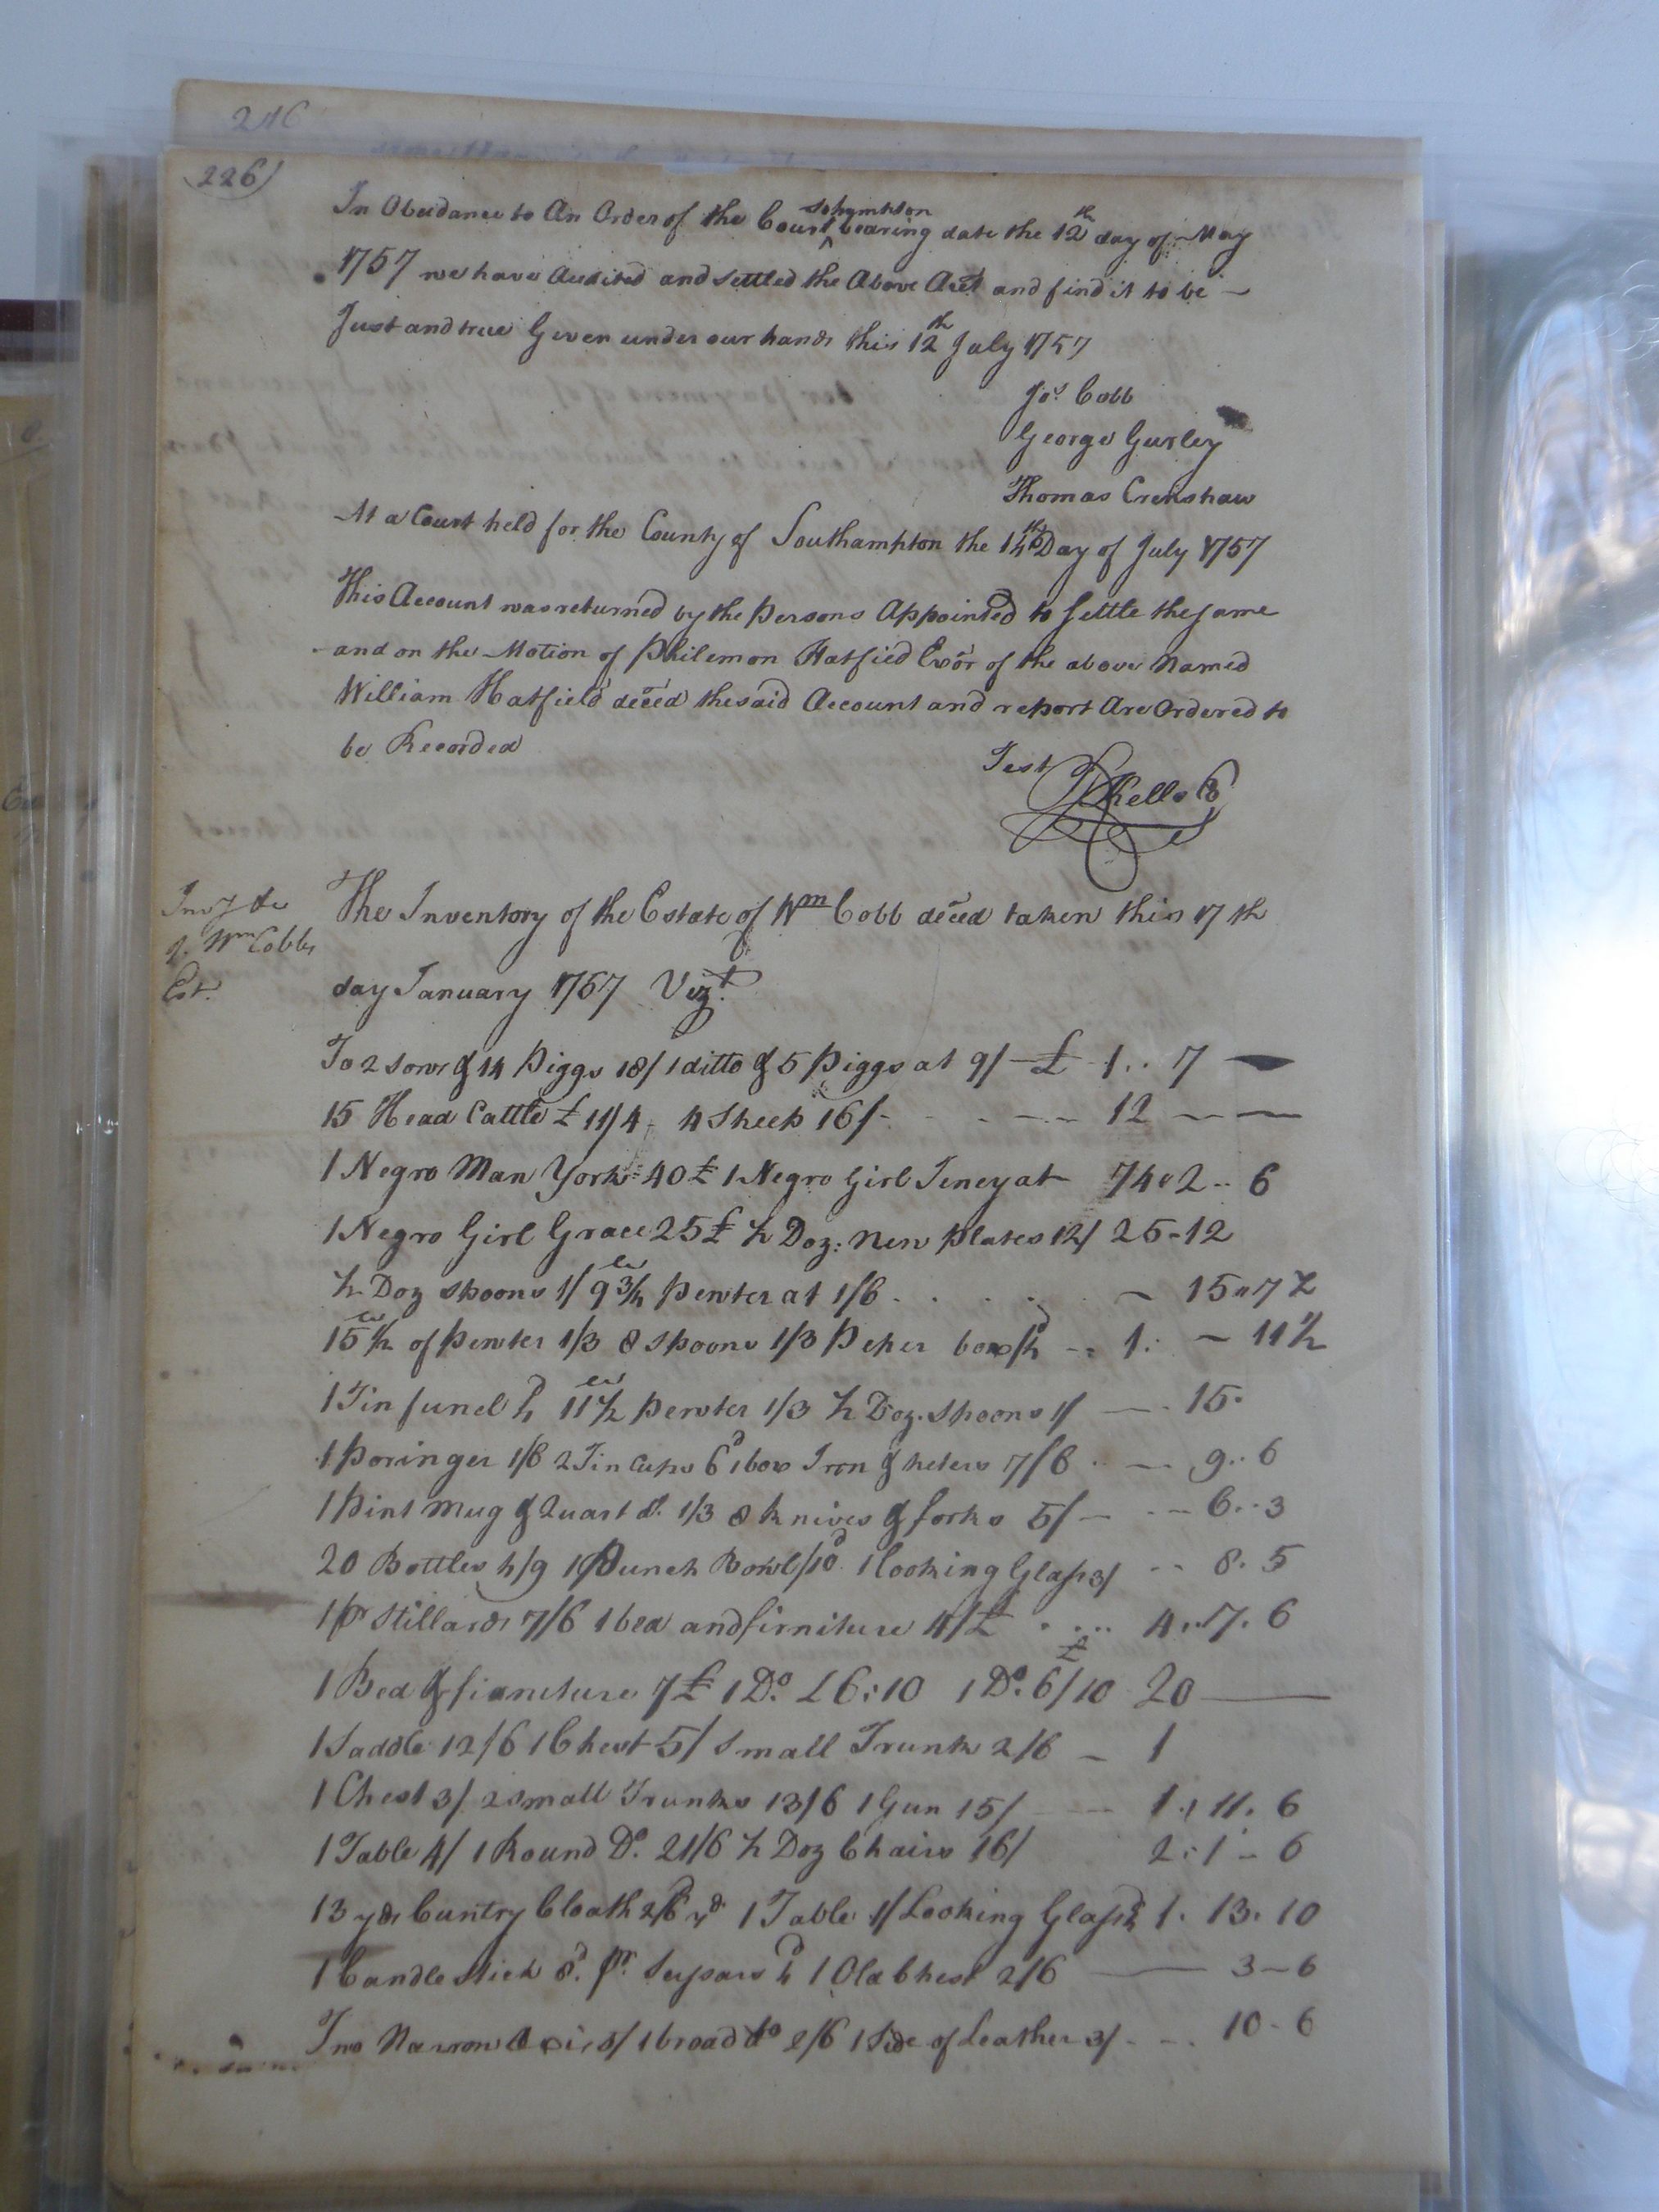 216
226)
In Obeidance to An Order of the Court Sohampton bearing date the 12th day of May
1757 we have Audited and settled the Above Acct and find it to be —
Just and true Given under our hands this 12th July 1757
Jos. Cobb
George Gurley
Thomas Crenshaw
At a Court held for the County of Southampton the 14th Day of July 1757
This Account was returned by the Persons Appointed to settle the same
and on the Motion of Philemon Hatfied Exor of the above Named
William Hatfield deced the said Account and report Are Ordered to
be Recorded
Test
RKello C
Invy &c
of Wm Cobbs
Est.
The Inventory of the Estate of Wm Cobb deced taken this 17 th
day January 1757 Vizt.
To 2 sows & 14 Piggs 18/ 1 ditto & 5 Piggs at 9/ — £ 1 .. 7 —
15 Head Cattle £ 11/4 - 4 Sheep 16/ - - - 12 — —
1 Negro Man York 40£ 1 Negro Girl Teney at 74 " 2 .. 6
1 Negro Girl Grace 25£ ½ Doz: New plates 12/ 25 - 12
½ Doz spoons 1/ 9¾ lb Pewter at 1/6 . . . . — 15 " 7 ½
15½ lb of Pewter 1/3 8 spoons 1/3 Peper box /4d - - 1 : — 11 ½
1 Tin funel 4d 11½ lb pewter 1/3 ½ Doz. spoons 1/ — . 15 .
1 Poringer 1/6 2 Tin Cups 6d 1 box Iron & heters 7/6 . . — 9 .. 6
1 Pint Mug & Quart do. 1/3 8 knives & forks 5/ — . — 6 .. 3
20 Bottles 4/9 1 Punch Bowl /8d 1 looking Glass 3/ - - 8 . 5
1 pr Stillards 7/6 1 bed and firniture 4/£ . . . . 4 .. 7 . 6
1 Bed & fiarniture 7£ 1 Do. £6:10 1 Do. 6£/10 20 —
1 Saddle 12/6 1 Chest 5/ small Trunk 2/6 — 1
1 Chest 3/ 2 small Trunks 13/6 1 Gun 15/ - — 1 .. 11 . 6
1 Table 4/ 1 Round Do. 21/6 ½ Doz Chairs 16/ 2 : 1 - 6
13 yds Cuntry Cloath 2/6 pr yd 1 Table 1/ Looking Glass 4d 1 . 13 . 10
1 Candlestick 8d. pr. 4d 1 Old Chest 2/6 — 3 — 6
Two Narrow Axis 5/ 1 broad do 2/6 1 Side of Leather 3/ - - . 10 - 6